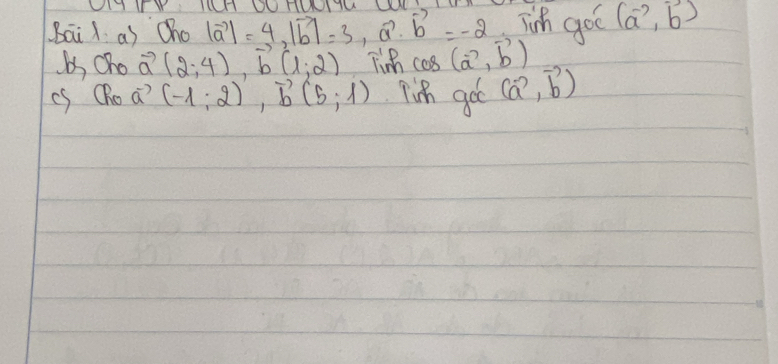 ÔN TẬP TÍCH VÔ HƯỚNG CỦA HAI
Bài 1. a) Cho |a⃗| = 4, |b⃗| = 3, a⃗. b⃗ = -2. Tính góc (a⃗, b⃗)
b) Cho a⃗ (2; 4), b⃗ (1; 2) Tính cos (a⃗, b⃗)
c) Cho a⃗ (-1; 2), b⃗ (5; 1). Tính góc (a⃗, b⃗)